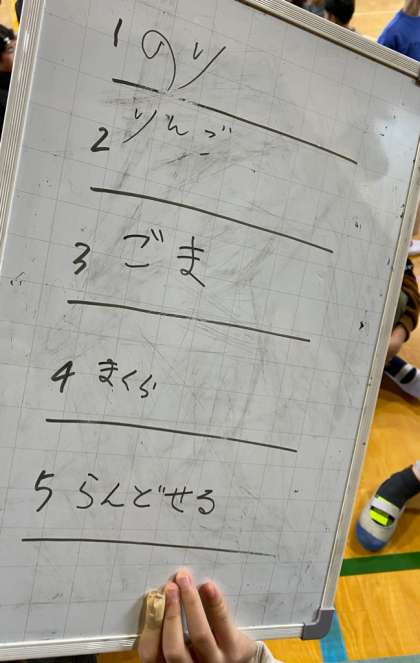 1 のり
2 りんご
3 ごま
4 まくら
5 らんどせる